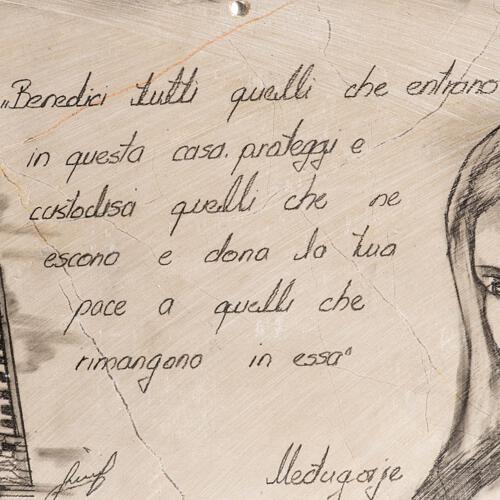 „Benedici tutti quelli che entrano
in questa casa. proteggi e
custodisci quelli che ne
escono e dona la tua
pace a quelli che
rimangono in essa"
Međugorje